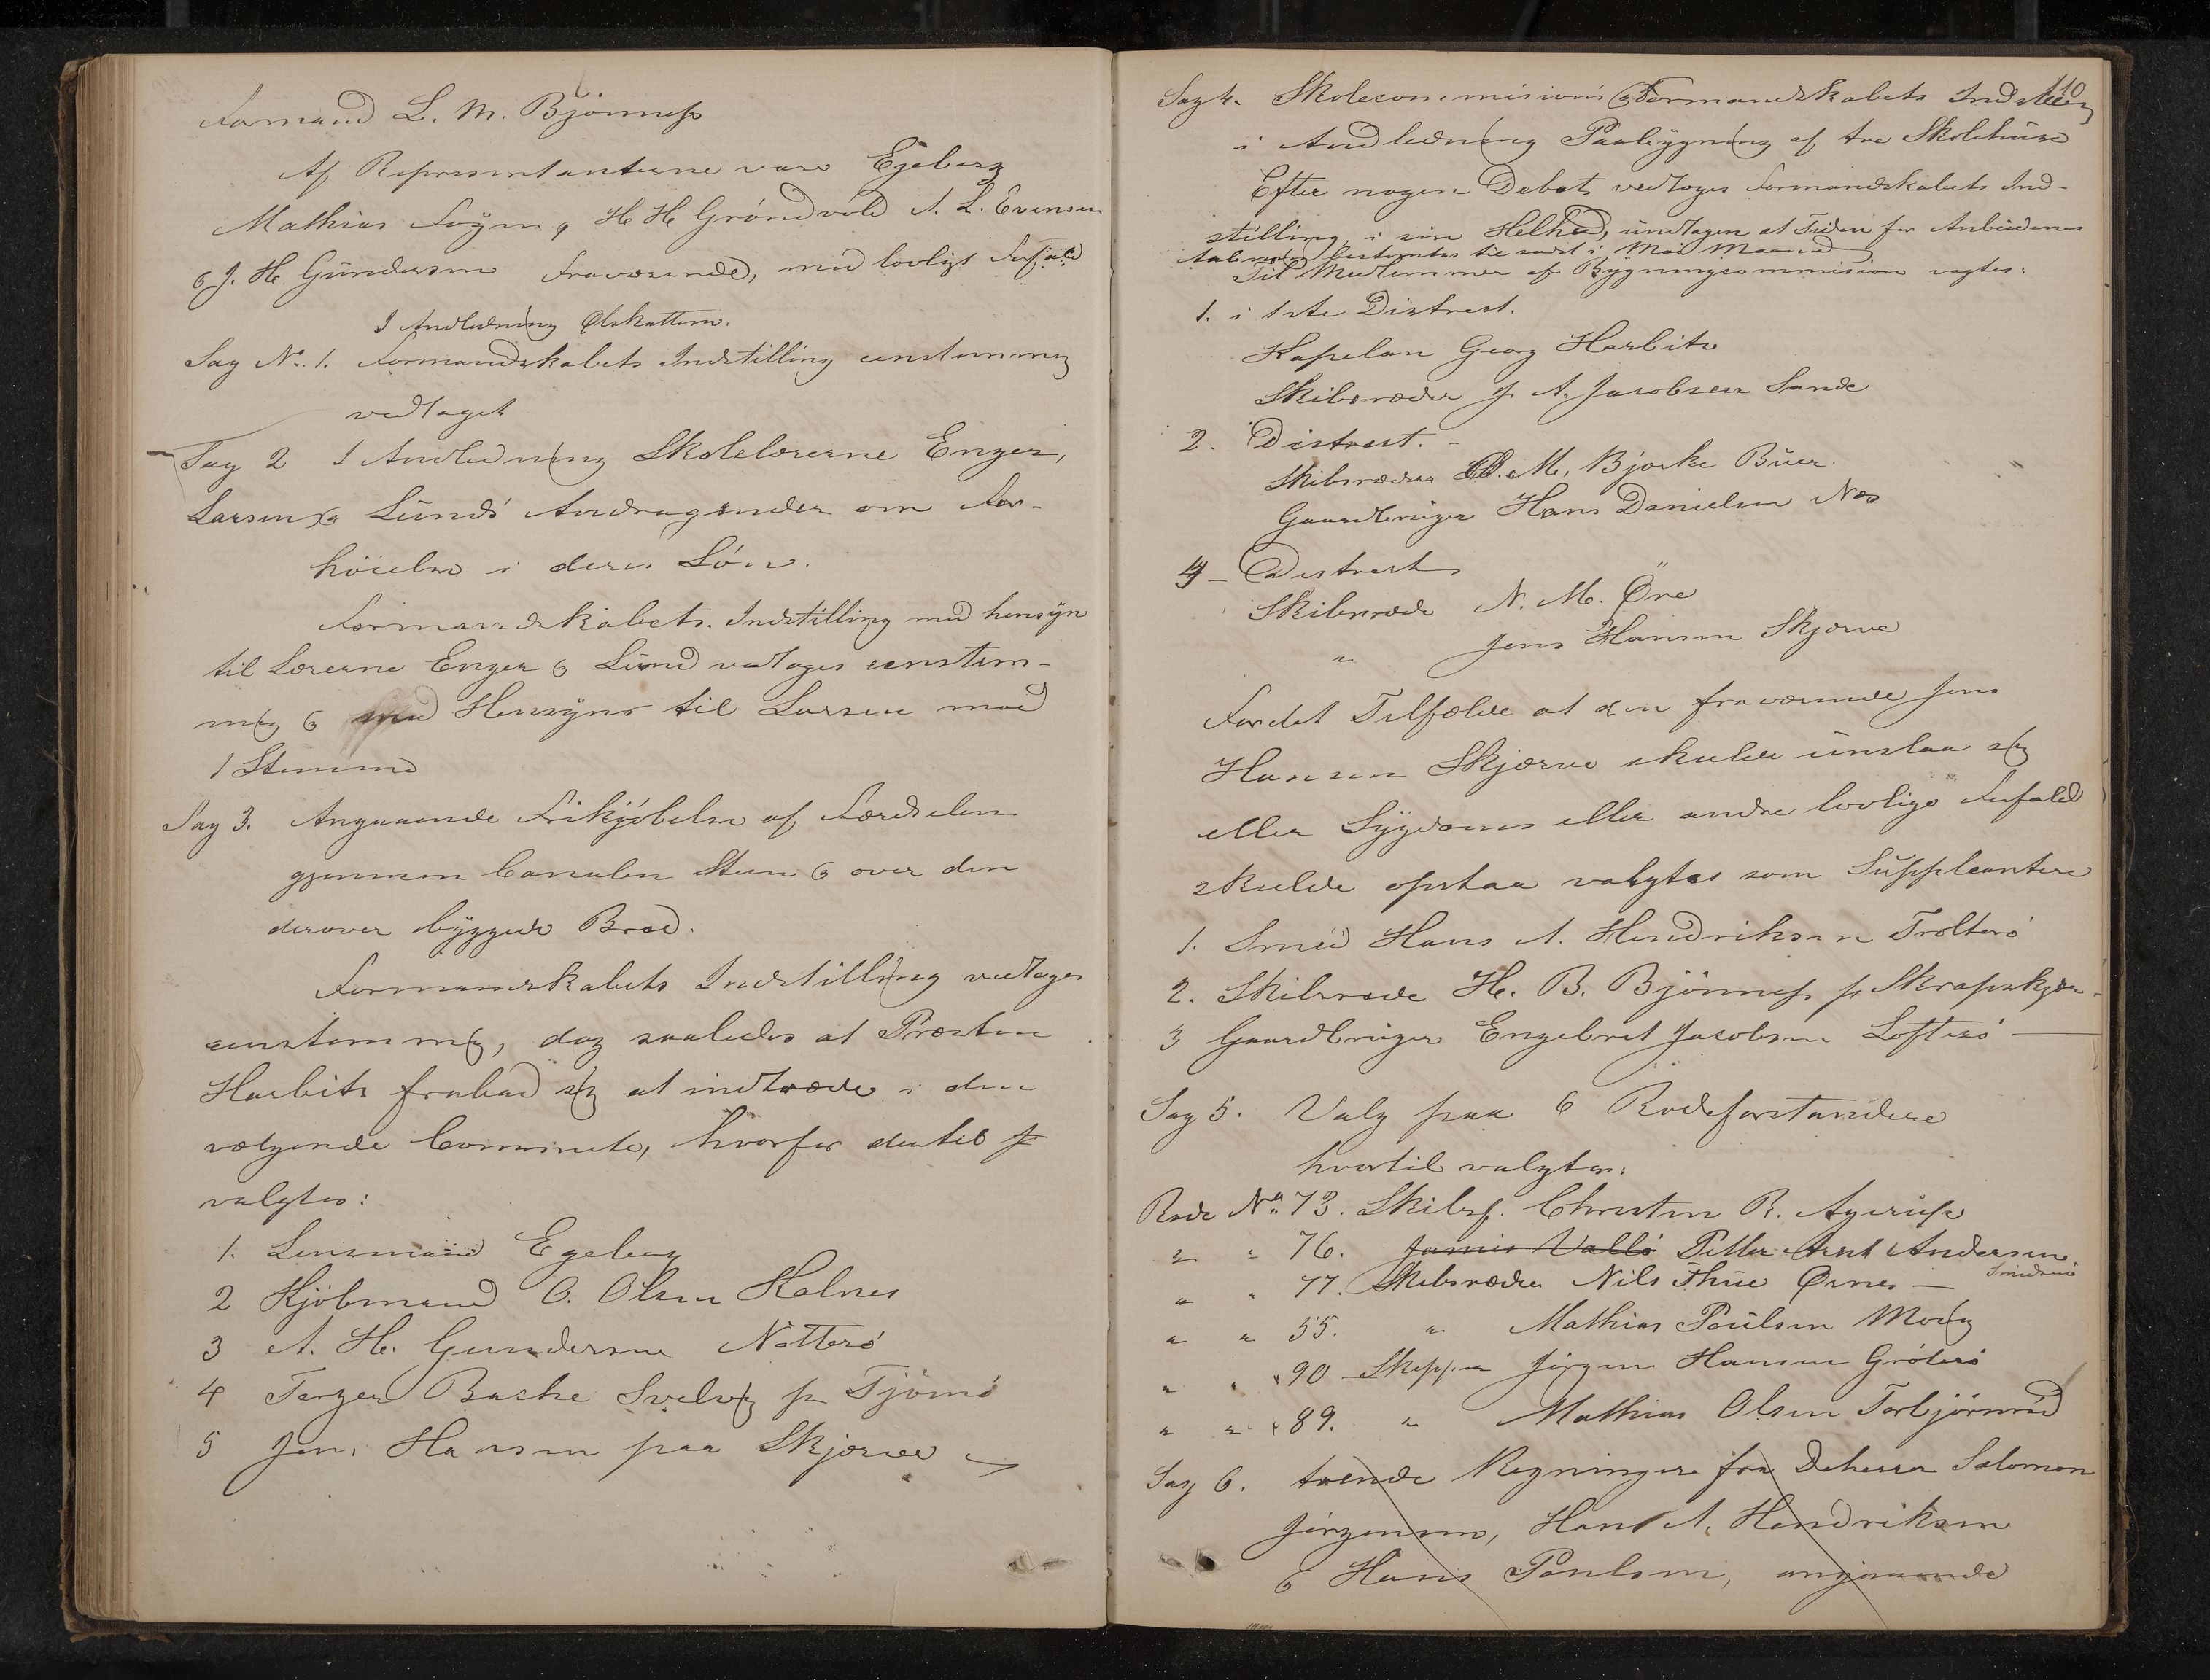 Formand L. M. Bjönness
Af Representanterne vare Egeberg
Mathias Föyn, H H Gröndvold A. L. Evensen
og J. H. Gundersen fraværende, med lovligt Forfald
I Andledning Ølskatten.
Sag No. 1. Formandskabets Indstilling eenstemmig
vedtaget
Sag 2 I Andledning Skolelærerne Enger,
Larsen og Lunds Andragender om For-
höielse i deres Lön.
Formandskabets Indstilling med hensyn
til Lærerne Enger og Lund vedtages eenstem-
mig og med Hensyn til Larsen mod
1 Stemme
Sag 3. Angaaende Frikjöbelse af Færdselen
gjennem Canalen Steen og over den
derover byggede Broe.
Formandskabets Indstilling vedtages
eenstemmig, dog saaledes at Præsten
Harbitz frabad sig at indtræde i den
vælgende Commite, hvorfor dertil
valgtes:
1. Lensmand Egeberg
2 Kjöbmand O. Olsen Holnes
3 A. H. Gundersen Nötterö
4 Terger Bache Svelvig p Tjömö
5 Jens Hansen paa Skjærve
110
Sag 4. Skolecommisions og Formandskabets Indstilling
i Andledning Paabygning af tre Skolehuse
Efter nogen Debat vedtoges Formandskabets Ind-
stilling i sin Helhed, undtagen at Tiden for Anbudenes
bestemtes til sidst i Mai Maaned
Til Medlemmer af Bygningscommision vagtes:
1. i 1ste Distrect.
Kapelan Georg Harbitz
Skibsræder J. A. Jacobsen Sande
2. Distrect.
Skibsræder M. Bjerke Buer.
Gaardbruger Hans Danielsen Næs
4 - Distrect
Skibsræde N. M. Öre
" Jens Hansen Skjærve
For det Tilfælde at den fraværende Jens
Hansen Skjærve skulde unslaa sig
eller Sygdoms eller andre lovlige Forfald
skulde opstaa valgtes som Suppleantere
1. Smed Hans A. Hendriksen Trolterö
2. Skibsræde H. B. Bjönness p Skrapskjær
3 Gaardbruger Engebret Jacobsen Lofterö
Sag 5. Valg paa 6 Rodeforstandere
hvortil valgtes:
Rode No. 73. Skibsf. Christen R. Agerup
" " 76. Jamis Vallö Petter Arnt Andersen
" " 77. Skibsræder Nils Thue Ørnes —
" " 55. " Mathias Poulsen Moeig
" " 90 Skipper Jörgen Hansen Gröterö
" " 89. " Mathias Olsen Torbjörnröd
Sag 6. trende Regninger fra Deherrer Salomon
Jörgensen, Hans A. Hendriksen
og Hans Poulsen, angaaende